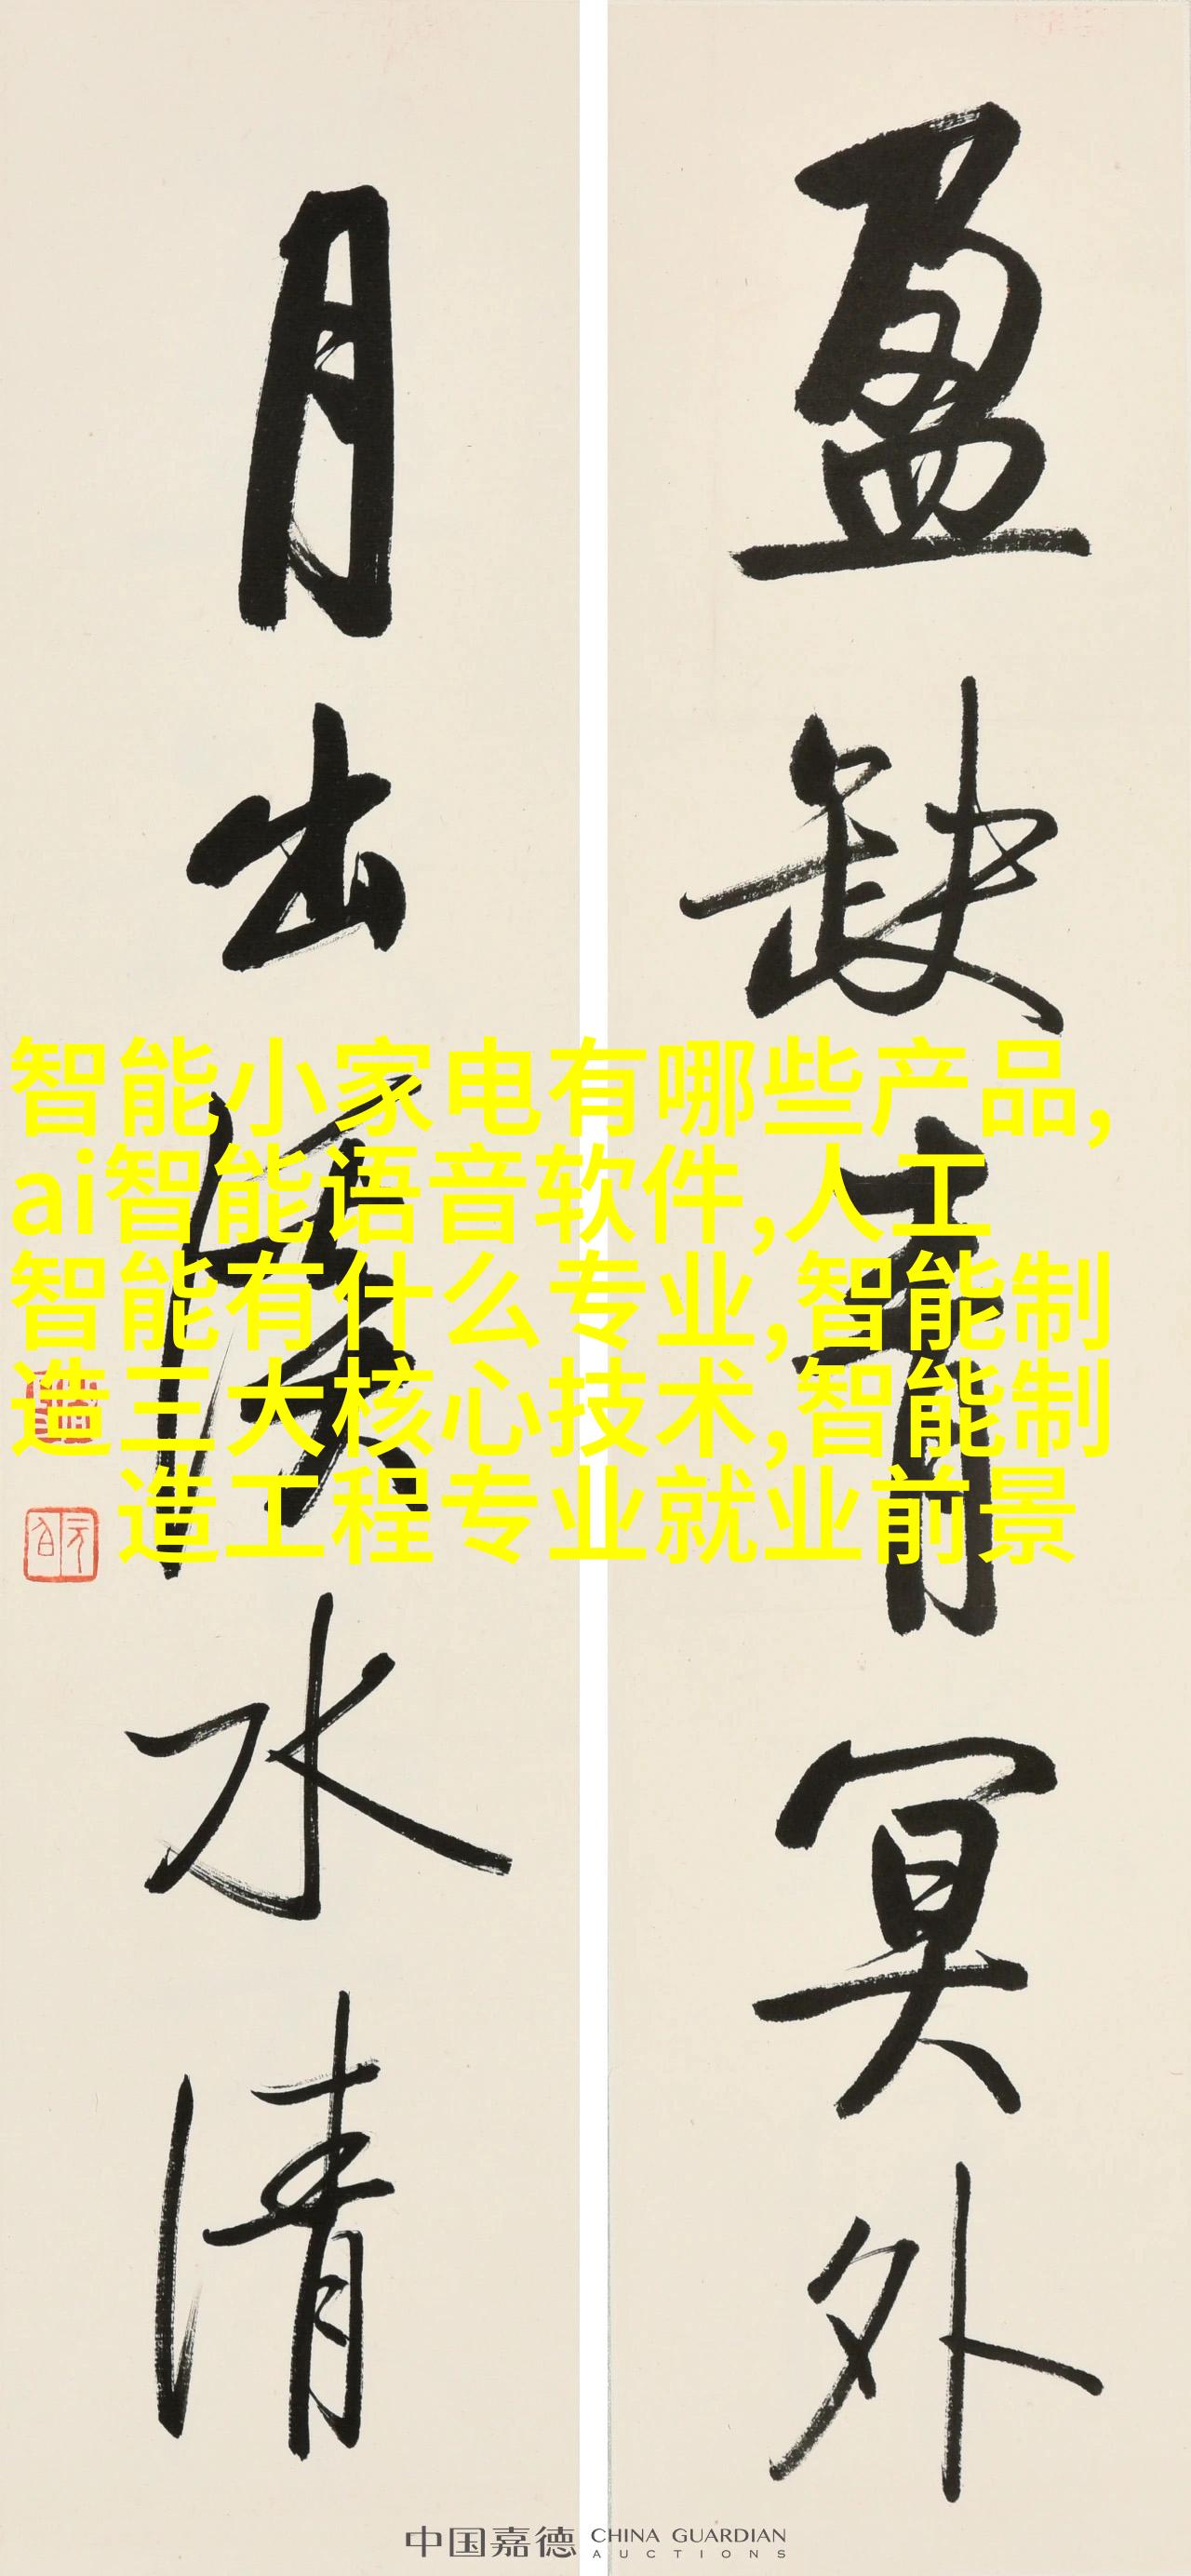 盈缺青冥外
月出溪水清
智能小家电有哪些产品,
ai智能语音软件,人工
智能有什么专业,智能制
造三大核心技术,智能制
造工程专业就业前景
中国嘉德 CHINA GUARDIAN
AUCTIONS